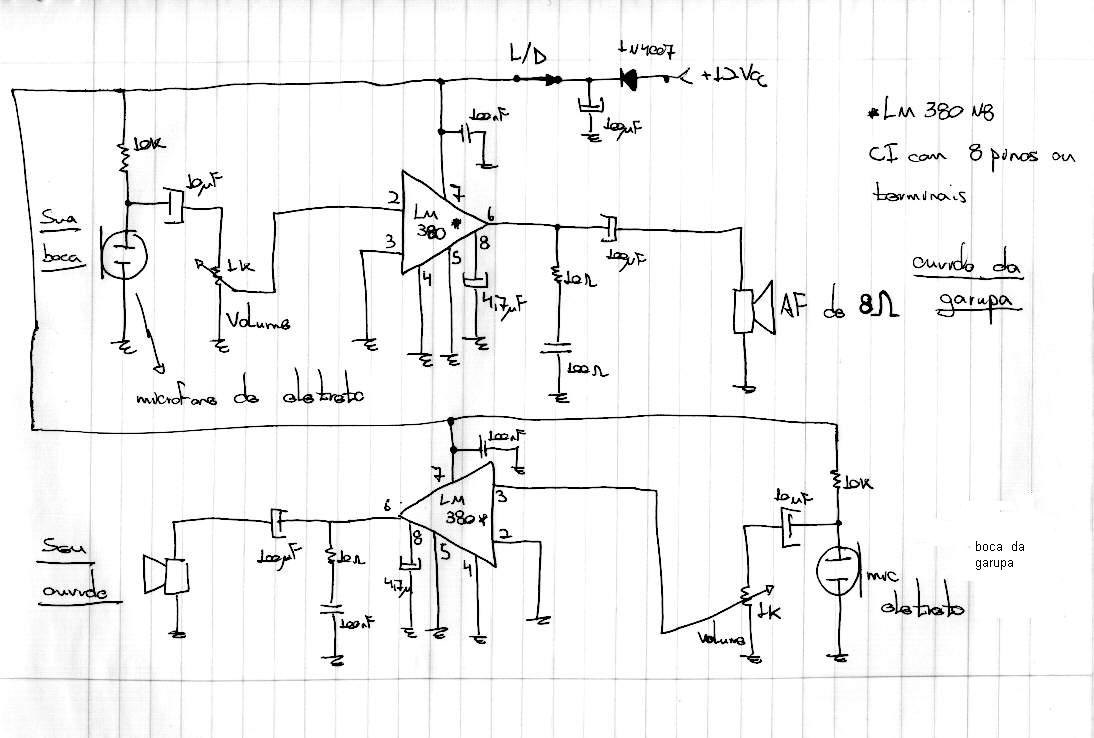 L/D
1N4007
+12Vcc
100nF
100µF
*LM 380 N8
CI com 8 pinos ou
terminais
10K
10µF
Sua
boca
1K
Volume
microfone de eletreto
2
3
LM
380 *
7
6
8
5
4
4,7µF
10Ω
100Ω
100µF
AF de 8Ω
ouvido da
garupa
100nF
7
6
LM
380*
3
2
8
5
4
4,7µ
100µF
10Ω
100nF
Seu
ouvido
10K
10µF
1K
Volume
mic
eletreto
boca da
garupa